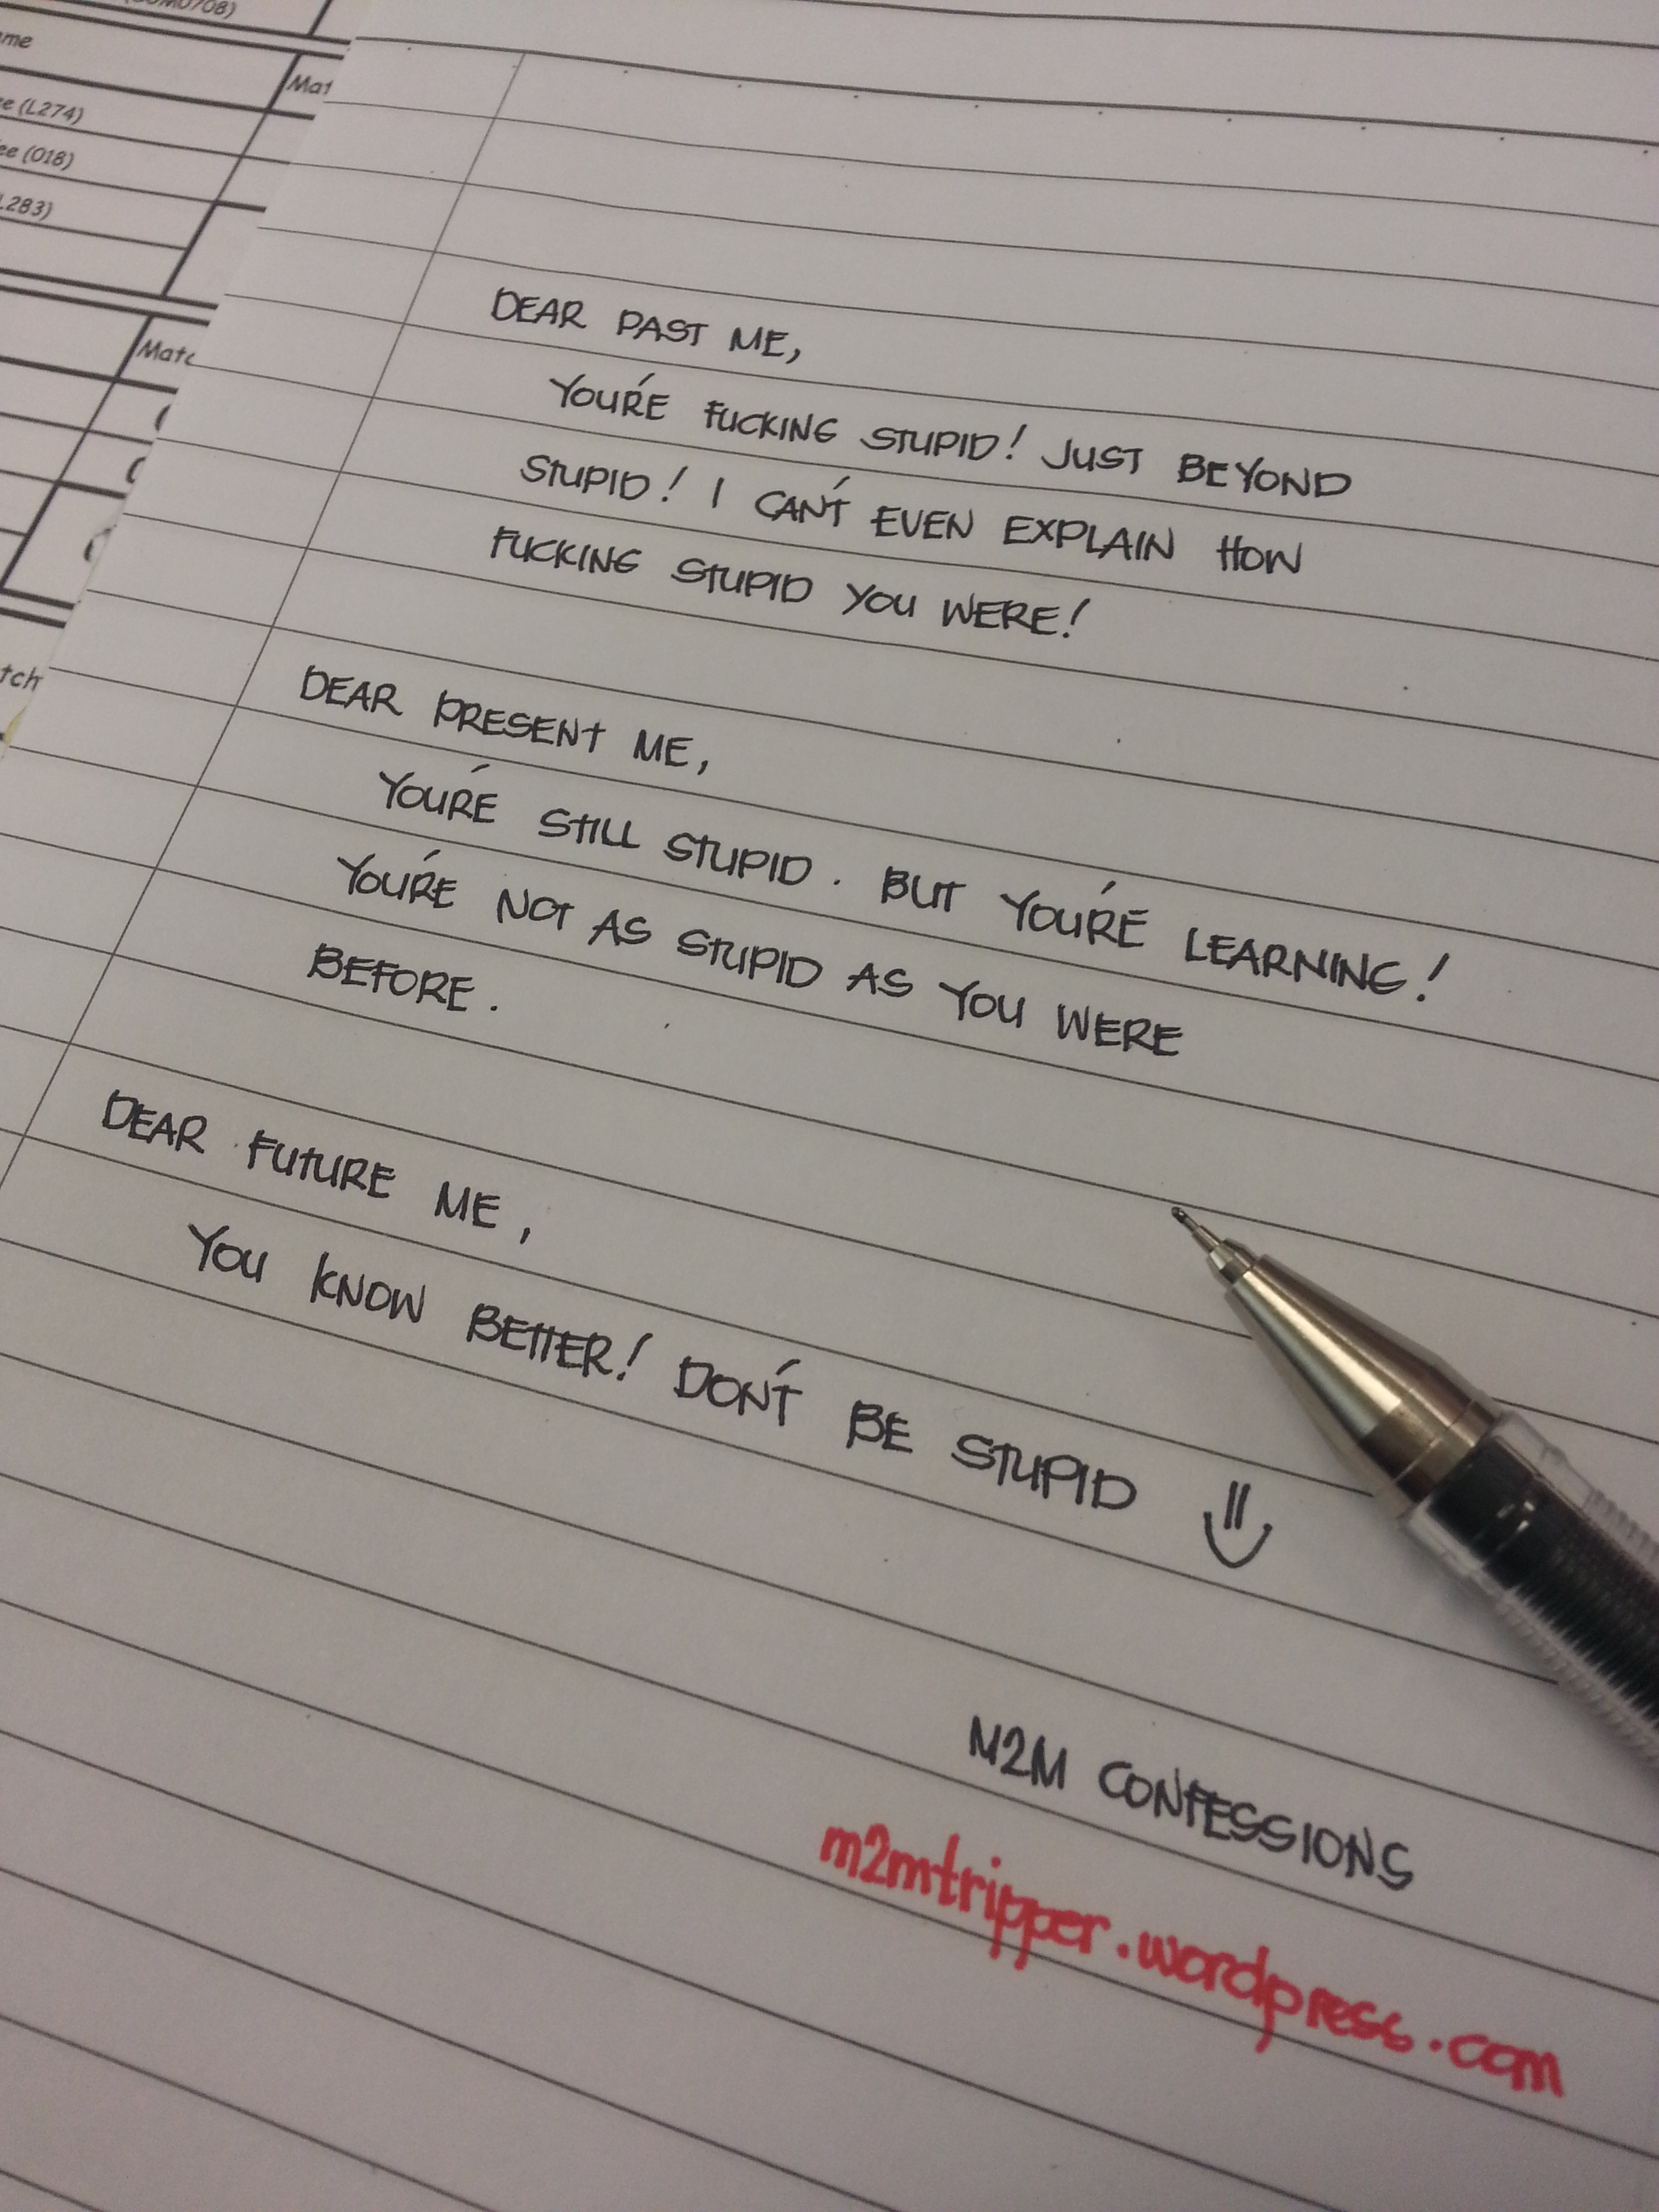 me
e (L274)
ee (018)
L283)
Mat
Matc
tch
DEAR PAST ME,
YOU'RE FUCKING STUPID! JUST BEYOND
STUPID! I CAN'T EVEN EXPLAIN HOW
FUCKING STUPID YOU WERE!
DEAR PRESENT ME,
YOU'RE STILL STUPID. BUT YOU'RE LEARNING!
YOU'RE NOT AS STUPID AS YOU WERE
BEFORE.
DEAR FUTURE ME,
YOU KNOW BETTER! DON'T BE STUPID
M2M CONFESSIONS
m2mtripper.wordpress.com